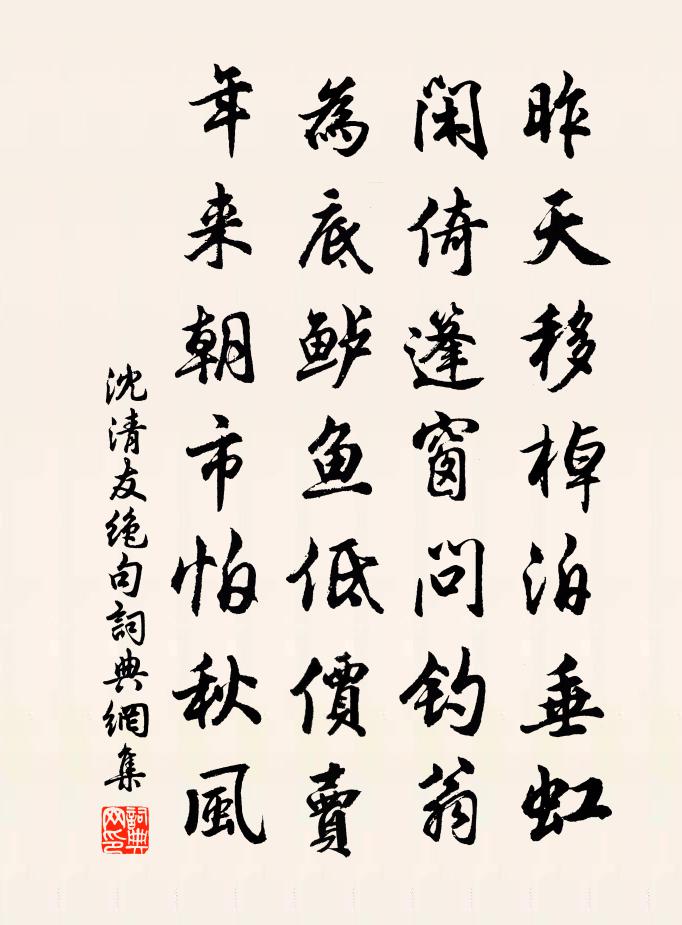 昨天移棹泊垂虹
闲倚篷窗問钓翁
為底鲈魚低價賣
年来朝市怕秋風
沈清友绝句詞典網集
詞典網印